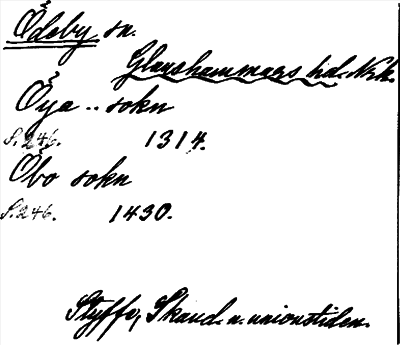 Ödeby sn.
Glanshammars hd. Nrk.
Öya .. sokn
S. 246. 1314.
Öbo sokn
S. 246. 1430.
Styffe, Skand. u. unionstiden.